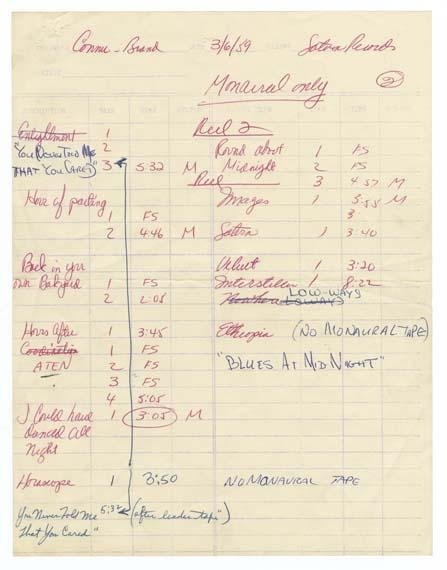 3/6/59
Saturn Records
Monaural only
2
Enlightment 1
"You Never Told Me 2
That You Cared" 3 5:32 M
Hour of parting
1 FS
2 4:46 M
Back in your
own Backyard 1 FS
2 2:05
Hours After 1 3:45
1 FS
ATEN 2 FS
3 FS
4 5:05
I Could have 1 3:05 M
Danced All
Night
Horoscope 1 3:50 No Monaural Tape
You Never Told Me 5:32 (after leader tape")
That You Cared"
Reel 2
Round about 1 FS
Midnight 2 FS
Reel 3 4:57 M
Images 1 3:55 M
3
Saturn 1 3:40
Velvet 1 3:20
Interstellar 1 8:22
Low-Ways
Loways
Ethiopia (No Monaural Tape)
"Blues At Midnight"